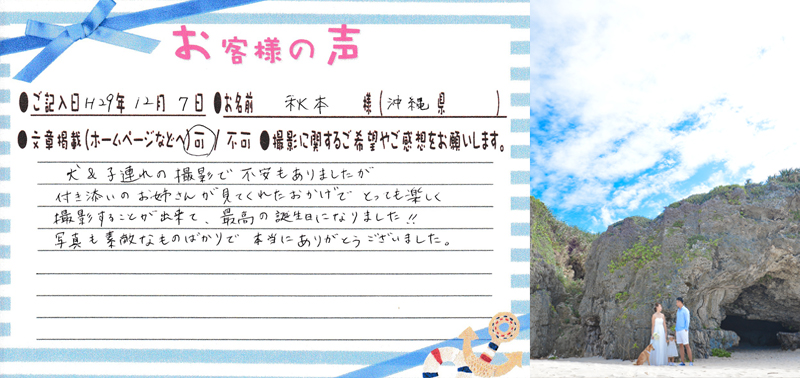 お客様の声
●ご記入日H29年12月7日 ●お名前 秋本 様(沖縄県)
●文章掲載(ホームページなどへ)可/不可 ●撮影に関するご希望やご感想をお願いします。
犬&子連れの撮影で不安もありましたが
付き添いのお姉さんが見てくれたおかげでとっても楽しく
撮影することが出来て、最高の誕生日になりました!!
写真も素敵なものばかりで本当にありがとうございました。